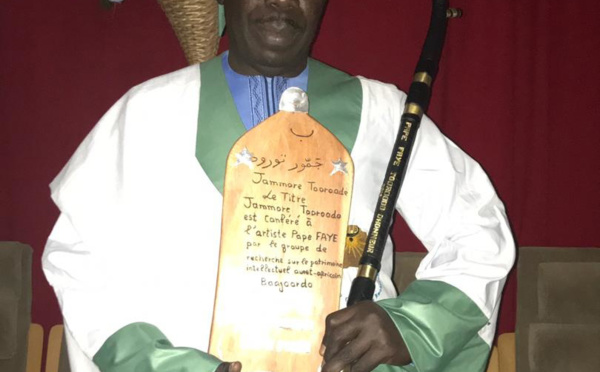 ب
جَمّور تورودو
Jammore Tooroodo
Le Titre
Jammore Tooroodo
est conféré à
l'artiste Pape FAYE
par le groupe de
recherche sur le patrimoine
intellectuel ouest-africain
Baajoordo
PAPE FAYE